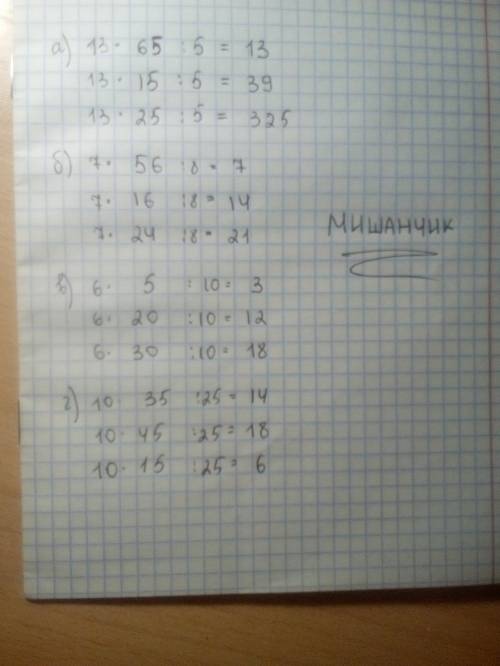 а) 13 · 65 : 5 = 13
13 · 15 : 5 = 39
13 · 25 : 5 = 325
б) 7 · 56 : 8 = 7
7 · 16 : 8 = 14
7 · 24 : 8 = 21
МИШАНЧИК
в) 6 · 5 : 10 = 3
6 · 20 : 10 = 12
6 · 30 : 10 = 18
г) 10 · 35 : 25 = 14
10 · 45 : 25 = 18
10 · 15 : 25 = 6